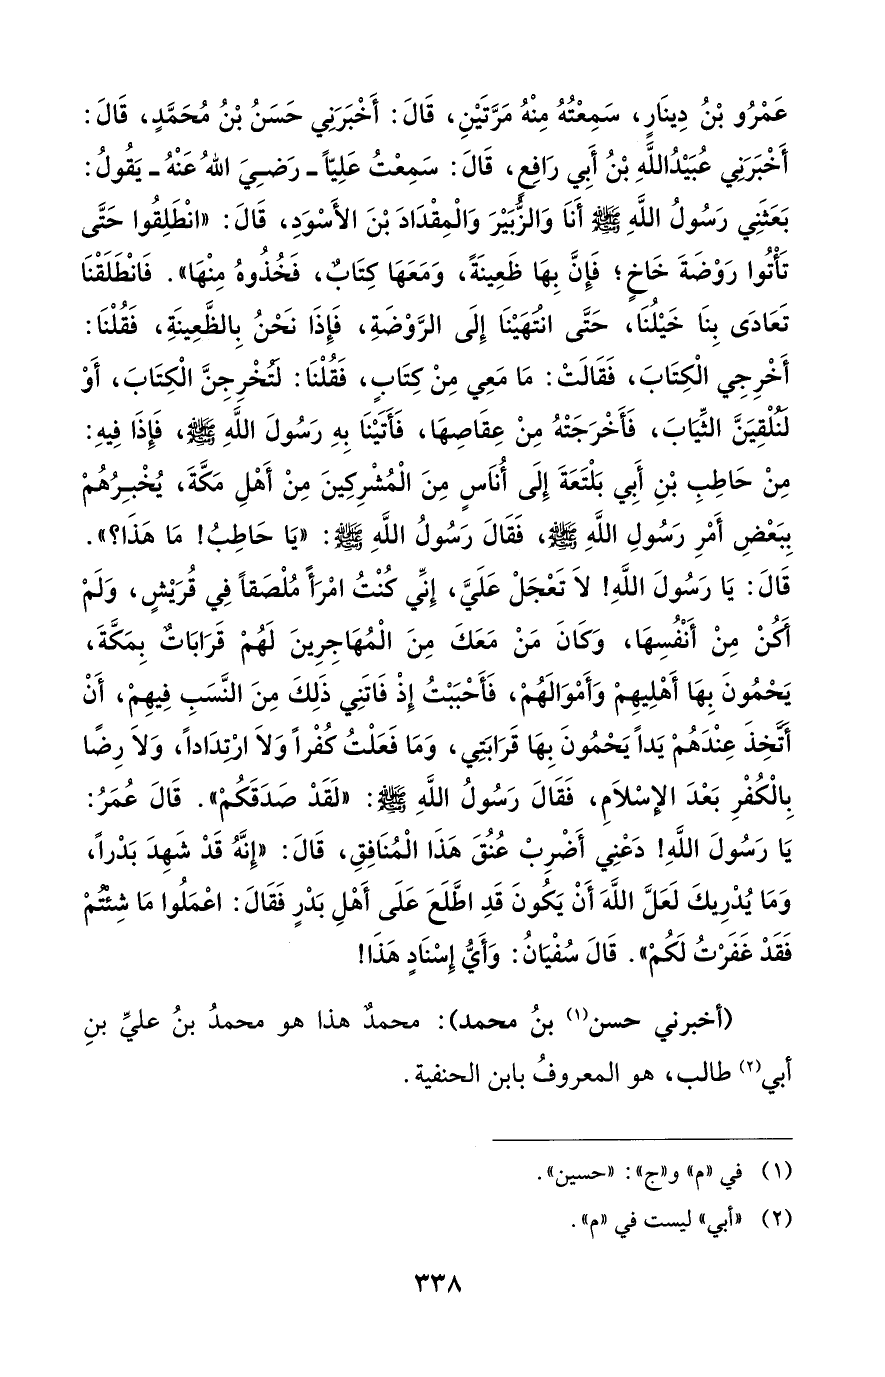 عَمْرُو بْنُ دِينَارٍ، سَمِعْتُهُ مِنْهُ مَرَّتَيْنِ، قَالَ: أَخْبَرَنِي حَسَنُ بْنُ مُحَمَّدٍ، قَالَ:
أَخْبَرَنِي عُبَيْدُاللَّهِ بْنُ أَبِي رَافِعٍ، قَالَ: سَمِعْتُ عَلِيّاً ـ رَضِيَ اللهُ عَنْهُ ـ يَقُولُ:
بَعَثَنِي رَسُولُ اللَّهِ ﷺ أَنَا وَالزُّبَيْرَ وَالْمِقْدَادَ بْنَ الأَسْوَدِ، قَالَ: «انْطَلِقُوا حَتَّى
تَأْتُوا رَوْضَةَ خَاخٍ؛ فَإِنَّ بِهَا ظَعِينَةً، وَمَعَهَا كِتَابٌ، فَخُذُوهُ مِنْهَا». فَانْطَلَقْنَا
تَعَادَى بِنَا خَيْلُنَا، حَتَّى انْتَهَيْنَا إِلَى الرَّوْضَةِ، فَإِذَا نَحْنُ بِالظَّعِينَةِ، فَقُلْنَا:
أَخْرِجِي الْكِتَابَ، فَقَالَتْ: مَا مَعِي مِنْ كِتَابٍ، فَقُلْنَا: لَتُخْرِجِنَّ الْكِتَابَ، أَوْ
لَنُلْقِيَنَّ الثِّيَابَ، فَأَخْرَجَتْهُ مِنْ عِقَاصِهَا، فَأَتَيْنَا بِهِ رَسُولَ اللَّهِ ﷺ، فَإِذَا فِيهِ:
مِنْ حَاطِبِ بْنِ أَبِي بَلْتَعَةَ إِلَى أُنَاسٍ مِنَ الْمُشْرِكِينَ مِنْ أَهْلِ مَكَّةَ، يُخْبِرُهُمْ
بِبَعْضِ أَمْرِ رَسُولِ اللَّهِ ﷺ، فَقَالَ رَسُولُ اللَّهِ ﷺ: «يَا حَاطِبُ! مَا هَذَا؟».
قَالَ: يَا رَسُولَ اللَّهِ! لاَ تَعْجَلْ عَلَيَّ، إِنِّي كُنْتُ امْرَأً مُلْصَقاً فِي قُرَيْشٍ، وَلَمْ
أَكُنْ مِنْ أَنْفُسِهَا، وَكَانَ مَنْ مَعَكَ مِنَ الْمُهَاجِرِينَ لَهُمْ قَرَابَاتٌ بِمَكَّةَ،
يَحْمُونَ بِهَا أَهْلِيهِمْ وَأَمْوَالَهُمْ، فَأَحْبَبْتُ إِذْ فَاتَنِي ذَلِكَ مِنَ النَّسَبِ فِيهِمْ، أَنْ
أَتَّخِذَ عِنْدَهُمْ يَداً يَحْمُونَ بِهَا قَرَابَتِي، وَمَا فَعَلْتُ كُفْراً وَلاَ ارْتِدَاداً، وَلاَ رِضًا
بِالْكُفْرِ بَعْدَ الإِسْلاَمِ، فَقَالَ رَسُولُ اللَّهِ ﷺ: «لَقَدْ صَدَقَكُمْ». قَالَ عُمَرُ:
يَا رَسُولَ اللَّهِ! دَعْنِي أَضْرِبْ عُنُقَ هَذَا الْمُنَافِقِ، قَالَ: «إِنَّهُ قَدْ شَهِدَ بَدْراً،
وَمَا يُدْرِيكَ لَعَلَّ اللَّهَ أَنْ يَكُونَ قَدِ اطَّلَعَ عَلَى أَهْلِ بَدْرٍ فَقَالَ: اعْمَلُوا مَا شِئْتُمْ
فَقَدْ غَفَرْتُ لَكُمْ». قَالَ سُفْيَانُ: وَأَيُّ إِسْنَادٍ هَذَا!
(أخبرني حسن(١) بنُ محمد): محمدٌ هذا هو محمدُ بنُ عليِّ بنِ
أبي(٢) طالب، هو المعروفُ بابن الحنفية.
(١) في «م» و«ج»: «حسين».
(٢) «أبي» ليست في «م».
٣٣٨